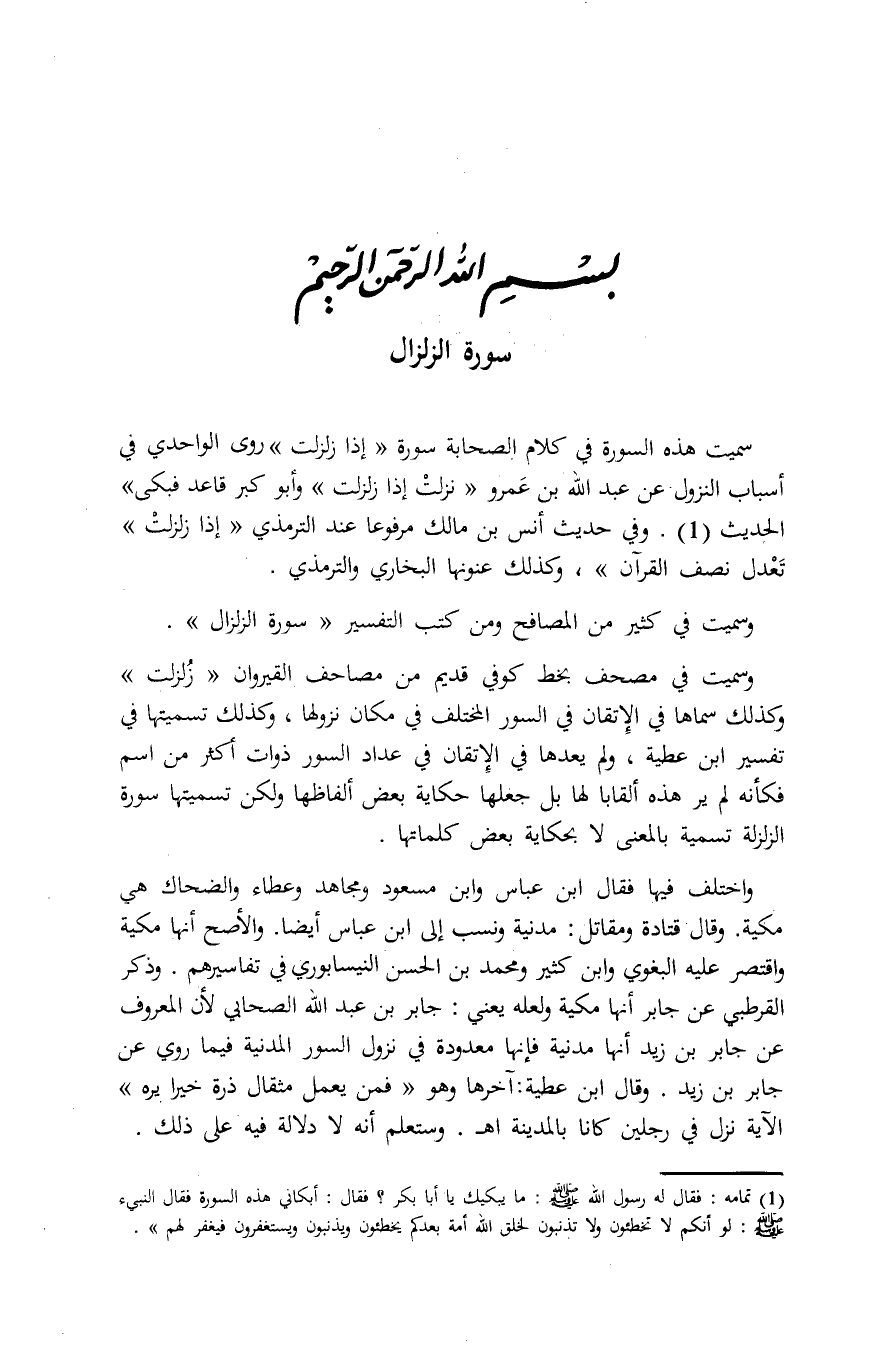 بسم الله الرحمن الرحيم
سورة الزلزال
سميت هذه السورة في كلام الصحابة سورة « إذا زلزلت » روى الواحدي في
أسباب النزول عن عبد الله بن عَمرو « نزلتْ إذا زلزلت » وأبو كبر قاعد فبكى»
الحديث (1) . وفي حديث أنس بن مالك مرفوعا عند الترمذي « إذا زلزلتْ »
تَعْدل نصف القرآن » ، وكذلك عنونها البخاري والترمذي .
وسميت في كثير من المصافح ومن كتب التفسير « سورة الزلزال » .
وسميت في مصحف بخط كوفي قديم من مصاحف القيروان « زُلزلت »
وكذلك سماها في الإتقان في السور المختلف في مكان نزولها ، وكذلك تسميتها في
تفسير ابن عطية ، ولم يعدها في الإتقان في عداد السور ذوات أكثر من اسم
فكأنه لم ير هذه ألقابا لها بل جعلها حكاية بعض ألفاظها ولكن تسميتها سورة
الزلزلة تسمية بالمعنى لا بحكاية بعض كلماتها .
واختلف فيها فقال ابن عباس وابن مسعود ومجاهد وعطاء والضحاك هي
مكية. وقال قتادة ومقاتل: مدنية ونسب إلى ابن عباس أيضا. والأصح أنها مكية
واقتصر عليه البغوي وابن كثير ومحمد بن الحسن النيسابوري في تفاسيرهم . وذكر
القرطبي عن جابر أنها مكية ولعله يعني : جابر بن عبد الله الصحابي لأن المعروف
عن جابر بن زيد أنها مدنية فإنها معدودة في نزول السور المدنية فيما روي عن
جابر بن زيد . وقال ابن عطية:آخرها وهو « فمن يعمل مثقال ذرة خيرا يره »
الآية نزل في رجلين كانا بالمدينة اهـ . وستعلم أنه لا دلالة فيه على ذلك .
(1) تمامه : فقال له رسول الله ﷺ : ما يبكيك يا أبا بكر ؟ فقال : أبكاني هذه السورة فقال النبيء
ﷺ : لو أنكم لا تخطئون ولا تذنبون لخلق الله أمة بعدكم يخطئون ويذنبون ويستغفرون فيغفر لهم » .